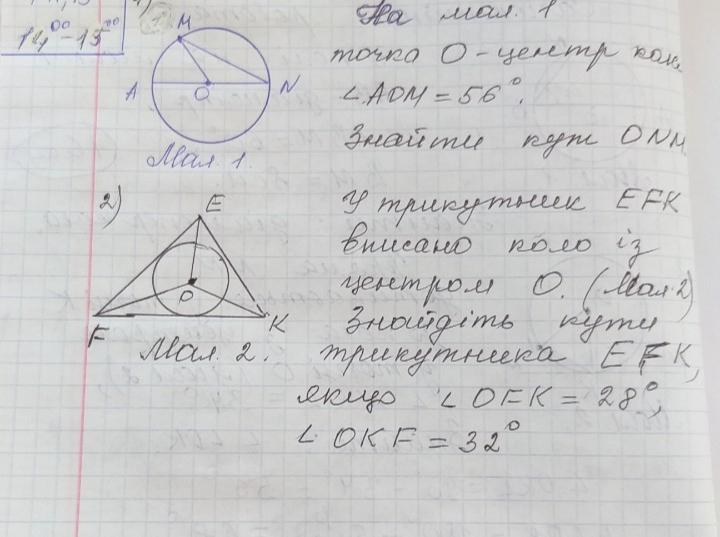 14⁰⁰-15⁰⁰
На мал. 1
точка O - центр кола
∠AOM = 56°.
Знайти кут ONM.
M
A
O
N
Мал. 1.
2)
У трикутник EFK
вписано коло із
центром O. (Мал. 2)
Знайдіть кути
трикутника EFK,
якщо ∠OFK = 28°,
∠OKF = 32°
E
O
F
K
Мал. 2.